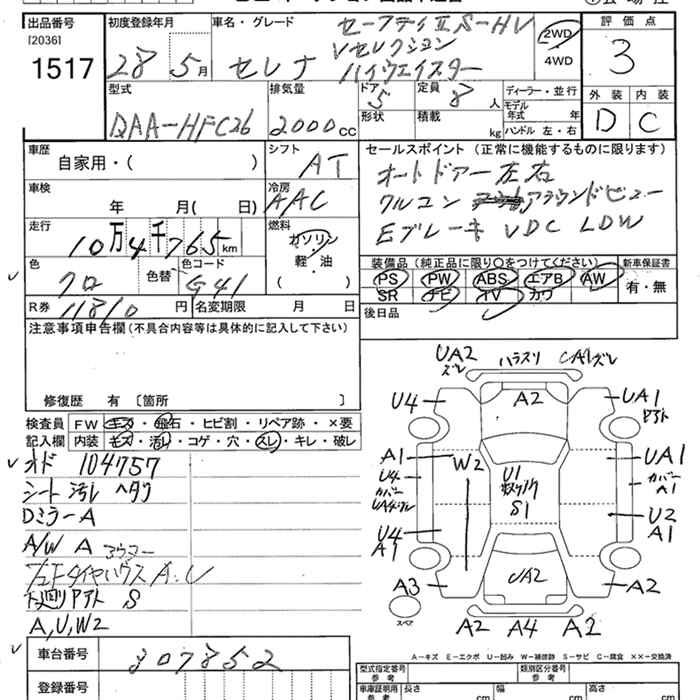 出品番号
[2036]
1517
初度登録年月
28 5月
車名・グレード
セレナ
セーフティⅡ S-HV
Vセレクション
ハイウェイスター
2WD
4WD
評価点
3
外装 内装
D C
型式
DAA-HFC26
排気量
2000cc
ドア
5
形状
定員
8人
積載 kg
ディーラー・並行
モデル年式 年
ハンドル 左・右
車歴
自家用・( )
シフト
AT
車検
年 月( 日)
冷房
AAC
走行
10万4千765km
燃料
ガソリン
軽・油
( )
色
クロ
色替
色コード
G41
R券
11810円
名変期限 月 日
セールスポイント (正常に機能するものに限ります)
オートドアー左右
クルコン アラウンドビュー
Eブレーキ VDC LDW
装備品(純正品に限り○をつけてください)
PS PW ABS エアB AW
SR ナビ TV カワ
新車保証書
有・無
後日品
注意事項申告欄(不具合内容等は具体的に記入して下さい)
修復歴 有 [箇所 ]
検査員記入欄
FW キズ・飛石・ヒビ割・リペア跡・×要
内装 キズ・汚れ・コゲ・穴・スレ・キレ・破レ
オド 104757
シート汚レ ヘタリ
DミラーA
A/W A
下廻りアト S
A,U,W2
車台番号
307852
登録番号
UA2 ズレ
ハラスリ
CA1ズレ
U4
A2
UA1
A1
W2
U1
S1
UA1
U4
カバー
カバー
A1
U4
A1
U2
A1
A3
UA2
A2
スペア
A2 A4 A2
A-キズ E-エクボ U-凹み W-補修跡 S-サビ C-腐食 ××-交換済
型式指定番号
参考
類別区分番号
参考
車庫証明用
参考
長さ cm
幅 cm
高さ cm